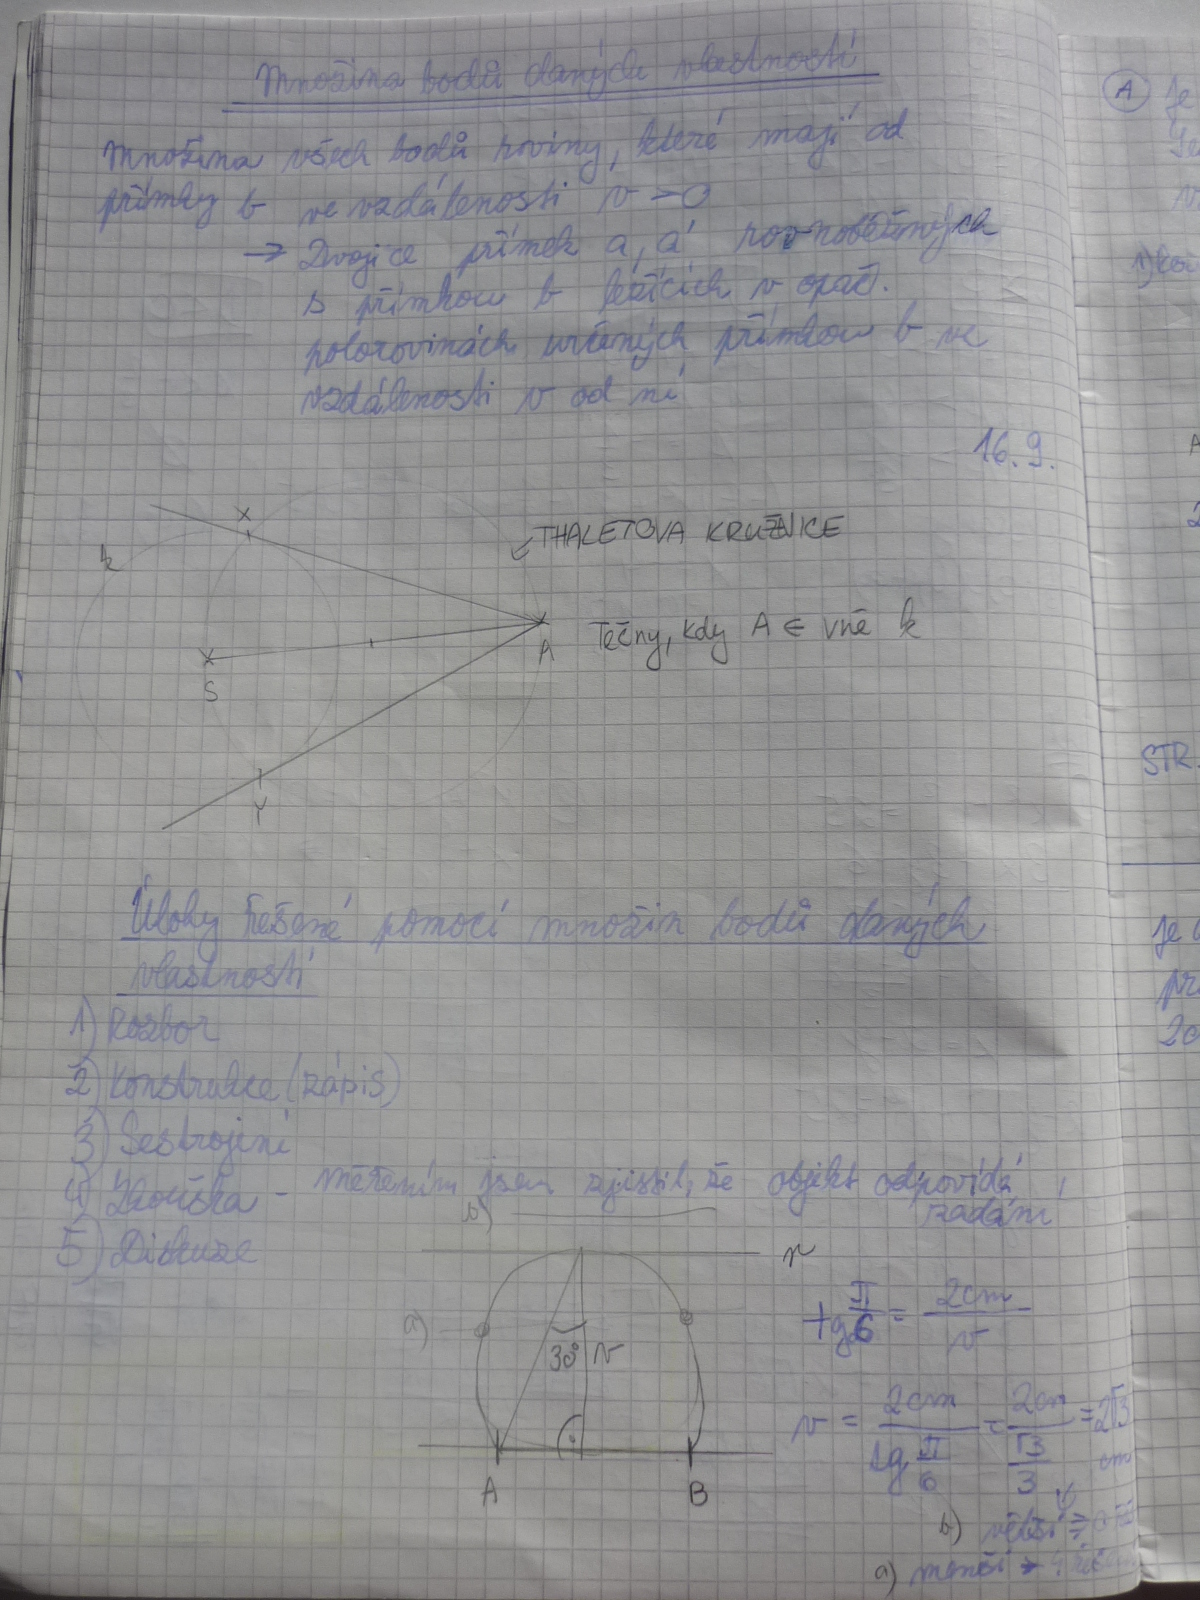 Množina bodů daných vlastností
Množina všech bodů roviny, které mají od
přímky b ve vzdálenosti v > 0
→ Dvojice přímek a, a' rovnoběžných
s přímkou b ležících v opač.
polorovinách určených přímkou b ve
vzdálenosti v od ní
16.9.
X
k
THALETOVA KRUŽNICE
Tečny, kdy A ∈ vně k
A
S
Y
Úlohy řešené pomocí množin bodů daných
vlastností
1) Rozbor
2) Konstrukce (zápis)
3) Sestrojení
4) Zkouška - měřením jsem zjistil, že objekt odpovídá
zadání
5) Diskuze
b)
a)
30° v
A B
tg π/6 = 2cm/v
v = 2cm/tg π/6 = 2cm/√3/3 = 2√3
cm
b) větší ⇒ 0
a) menší →
A
Je
1)
STR.
je
2